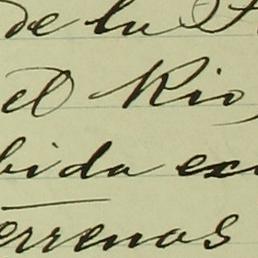 de la
el Rio,
bida ex
errenos